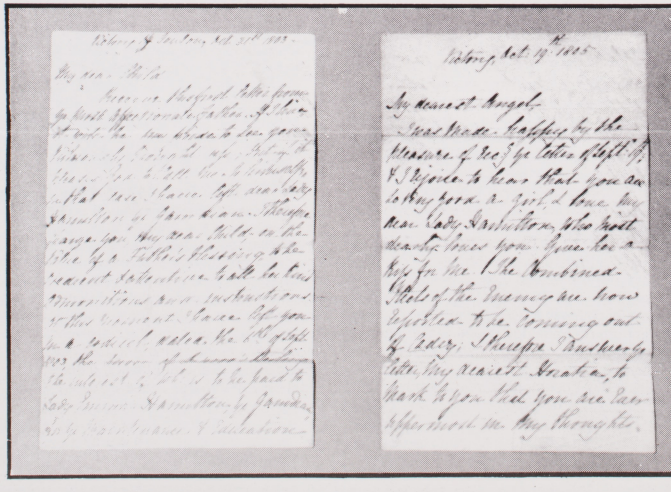 Victory, Oct. 21st 1803
My dear Child
Receive this first letter from
yr most affectionate Father. If I live
it will be
that case I have left dear Lady
Hamilton yr Guardian. I therefore
charge you my dear Child, on the
of a Father's Blessing, to be
obedient & attentive to all her kind
admonitions and instructions
At this moment I have left you
in a Codicil, dated the 6th of Sept.
1803 the sum of
the interest of which is to be paid to
Lady Emma Hamilton, yr Guardian
Maintenance & Education
Victory, Oct 19th 1805
My dearest Angel,
I was Made happy by the
pleasure of recg yr letter of Sept. 19th,
& I rejoice to hear that you are
so very good a girl, & love my
dear Lady Hamilton, who most
dearly loves you Give her a
kiss for me. The Combined
Fleets of the Enemy are now
reported to be coming out
of Cadiz; I therefore I answer yr
letter, my dearest Horatia, to
mark to you that you are Ever
uppermost in My thoughts.